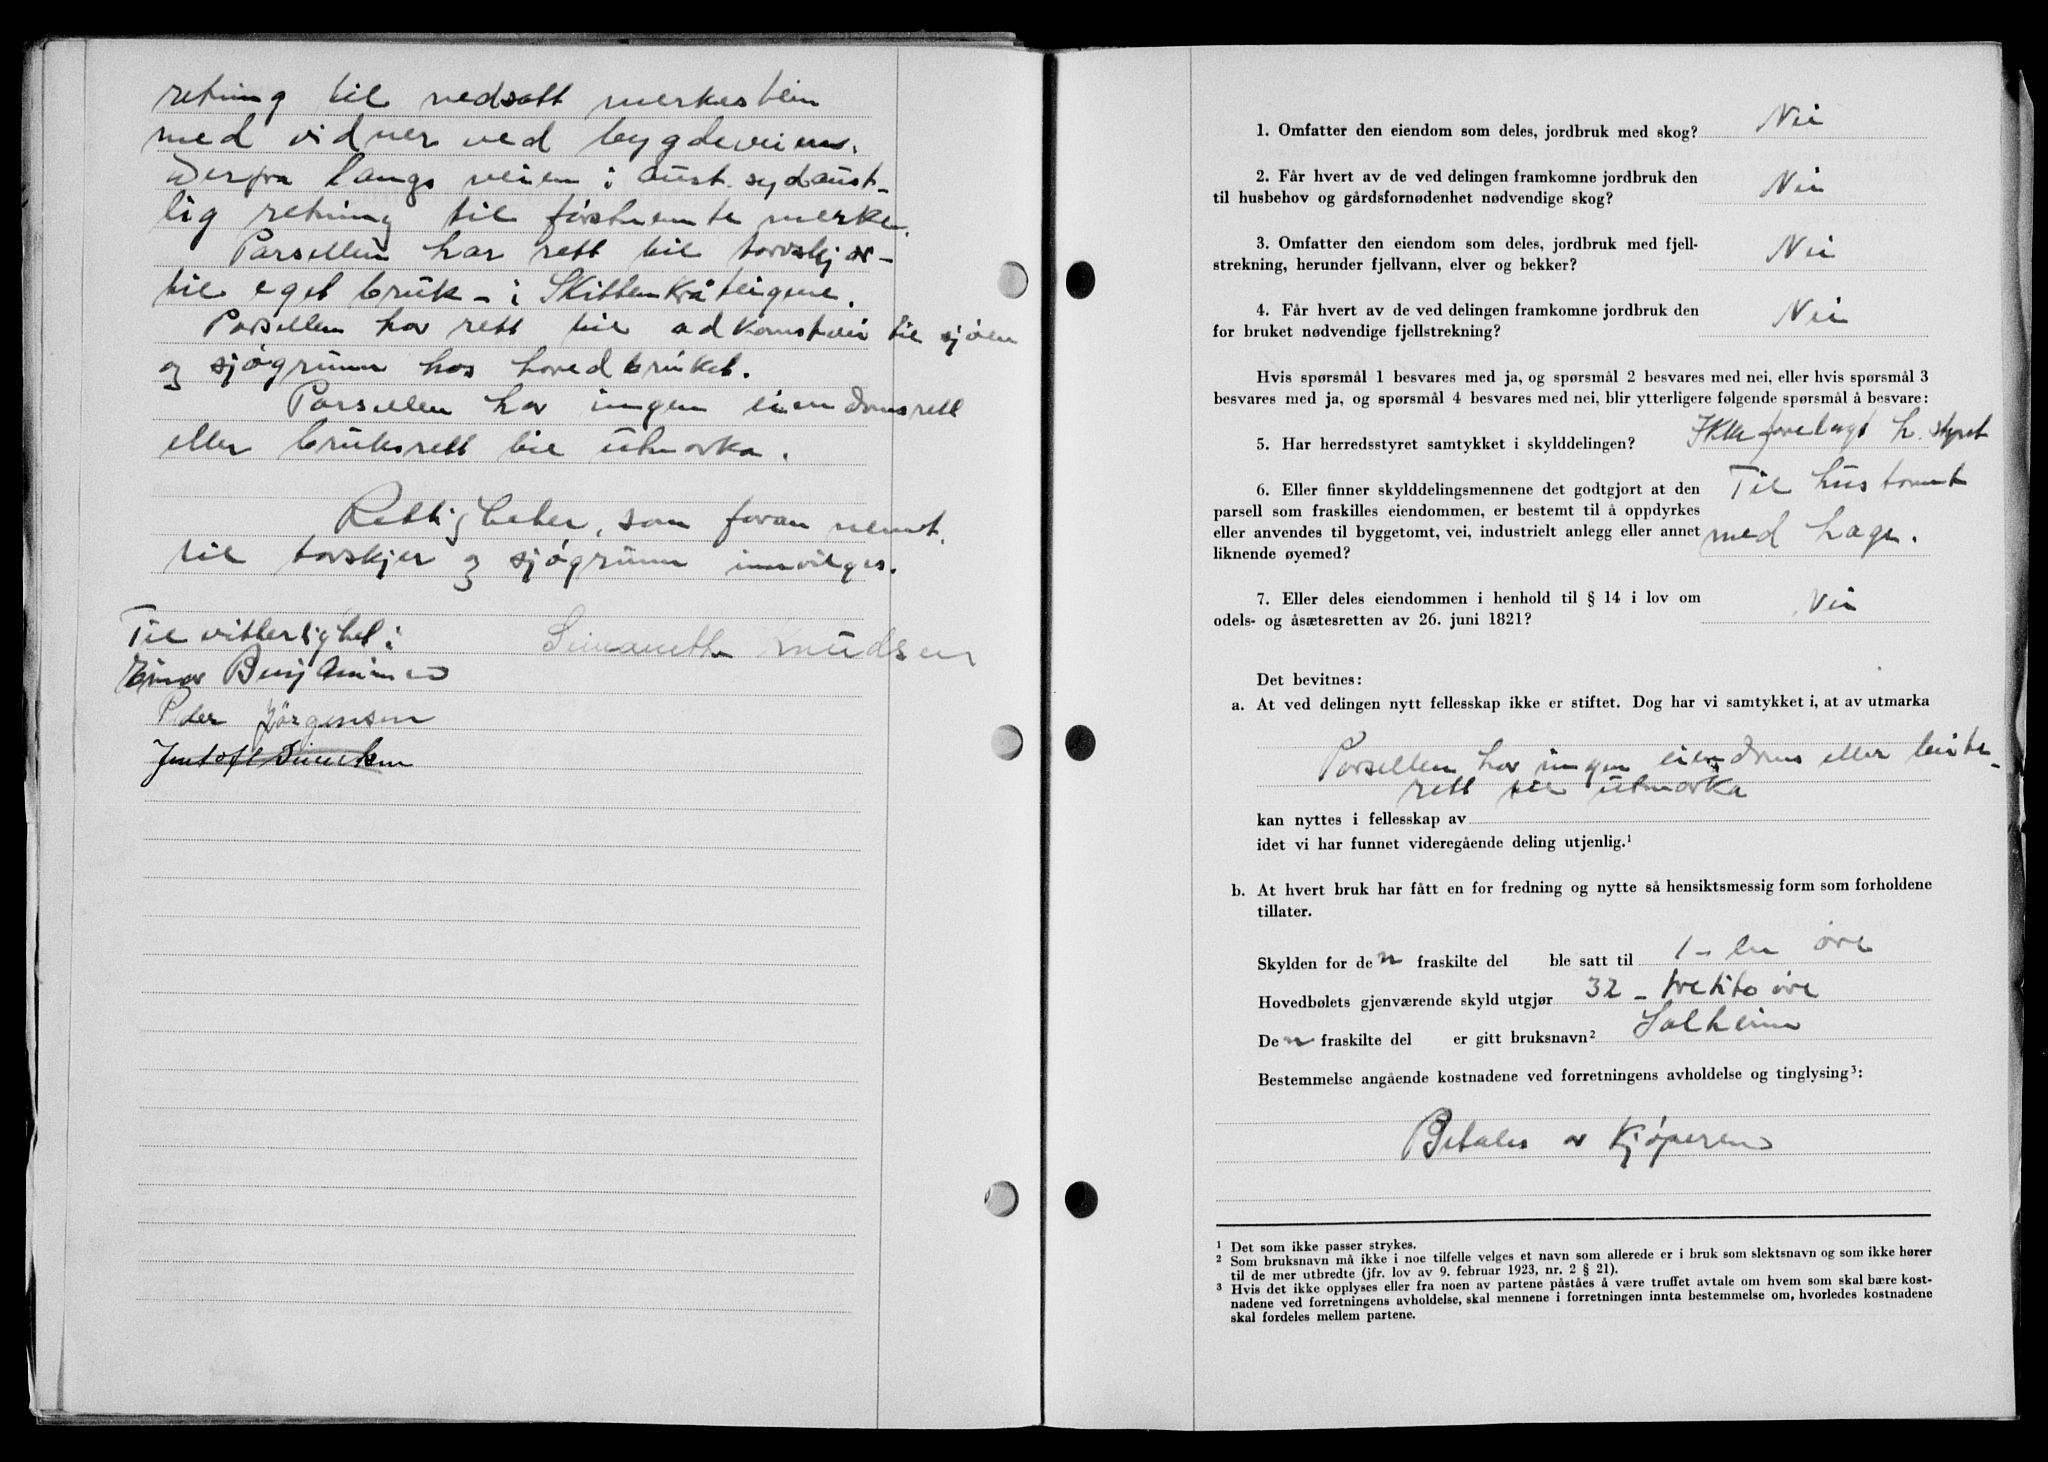 retning til nedsatt merkestein
med vidner ved bygdeveien.
Derfra langs veien i aust. sydaust-
lig retning til førstnemte merke.
Parsellen har rett til torvskjær-
til eget bruk - i Skittenkråteigene.
Parsellen har rett til adkomstvei til sjøen
og sjøgrunn hos hovedbruket.
Parsellen har ingen eiendomsrett
eller bruksrett til utmarka.
Rettigheter, som foran nemt,
til torvskjer og sjøgrunn innvilges.
Til vitterlighet:
Einar Benjaminsen
Simanette Knudsen
Peder Jørgensen
1. Omfatter den eiendom som deles, jordbruk med skog? Nei
2. Får hvert av de ved delingen framkomne jordbruk den
til husbehov og gårdsfornødenhet nødvendige skog? Nei
3. Omfatter den eiendom som deles, jordbruk med fjell-
strekning, herunder fjellvann, elver og bekker? Nei
4. Får hvert av de ved delingen framkomne jordbruk den
for bruket nødvendige fjellstrekning? Nei
Hvis spørsmål 1 besvares med ja, og spørsmål 2 besvares med nei, eller hvis spørsmål 3
besvares med ja, og spørsmål 4 besvares med nei, blir ytterligere følgende spørsmål å besvare:
5. Har herredsstyret samtykket i skylddelingen? Ikke forelagt h. styret
6. Eller finner skylddelingsmennene det godtgjort at den Til hustomt
parsell som fraskilles eiendommen, er bestemt til å oppdyrkes
eller anvendes til byggetomt, vei, industrielt anlegg eller annet med hage.
liknende øyemed?
7. Eller deles eiendommen i henhold til § 14 i lov om
odels- og åsætesretten av 26. juni 1821? Nei
Det bevitnes:
a. At ved delingen nytt fellesskap ikke er stiftet. Dog har vi samtykket i, at av utmarka
Parsellen har ingen eiendoms eller beite-
rett til utmarka
kan nyttes i fellesskap av
idet vi har funnet videregående deling utjenlig.¹
b. At hvert bruk har fått en for fredning og nytte så hensiktsmessig form som forholdene
tillater.
Skylden for den fraskilte del ble satt til 1 - en øre
Hovedbølets gjenværende skyld utgjør 32 - tretito øre
Den fraskilte del er gitt bruksnavn² Solheim
Bestemmelse angående kostnadene ved forretningens avholdelse og tinglysing³:
Betales av kjøperen
¹ Det som ikke passer strykes.
² Som bruksnavn må ikke i noe tilfelle velges et navn som allerede er i bruk som slektsnavn og som ikke hører
til de mer utbredte (jfr. lov av 9. februar 1923, nr. 2 § 21).
³ Hvis det ikke opplyses eller fra noen av partene påståes å være truffet avtale om hvem som skal bære kost-
nadene ved forretningens avholdelse, skal mennene i forretningen innta bestemmelse om, hvorledes kostnadene
skal fordeles mellem partene.